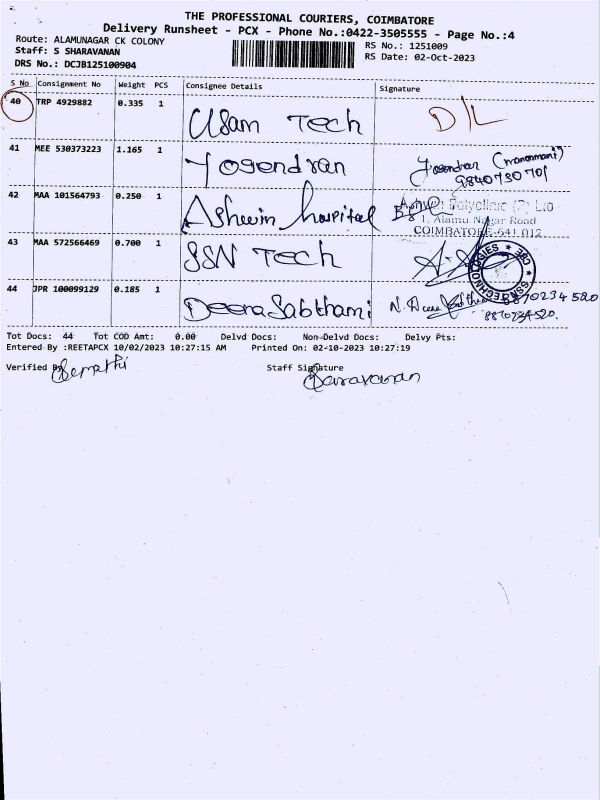 THE PROFESSIONAL COURIERS, COIMBATORE
Delivery Runsheet - PCX - Phone No.:0422-3505555 - Page No.:4
Route: ALAMUNAGAR CK COLONY
Staff: S SHARAVANAN
DRS No.: DCJB125100904
RS No.: 1251009
RS Date: 02-Oct-2023
S No Consignment No Weight PCS Consignee Details Signature
40 TRP 4929882 0.335 1 Usam Tech D/L
41 MEE 530373223 1.165 1 Yogendran Yogendran (manonmani)
9840730701
42 MAA 101564793 0.250 1 Ashwin hospital
Polyclinic (P) Ltd
1, Alamu Nagar Road
COIMBATORE-641 012
43 MAA 572566469 0.700 1 SSN Tech
SSN TECHNOLOGIES * CBE *
44 JPR 100099129 0.185 1 Deena Sabthami 8870234520
8870234520.
Tot Docs: 44 Tot COD Amt: 0.00 Delvd Docs: Non-Delvd Docs: Delvy Pts:
Entered By :REETAPCX 10/02/2023 10:27:15 AM Printed On: 02-10-2023 10:27:19
Verified By
Staff Signature
Saravanan